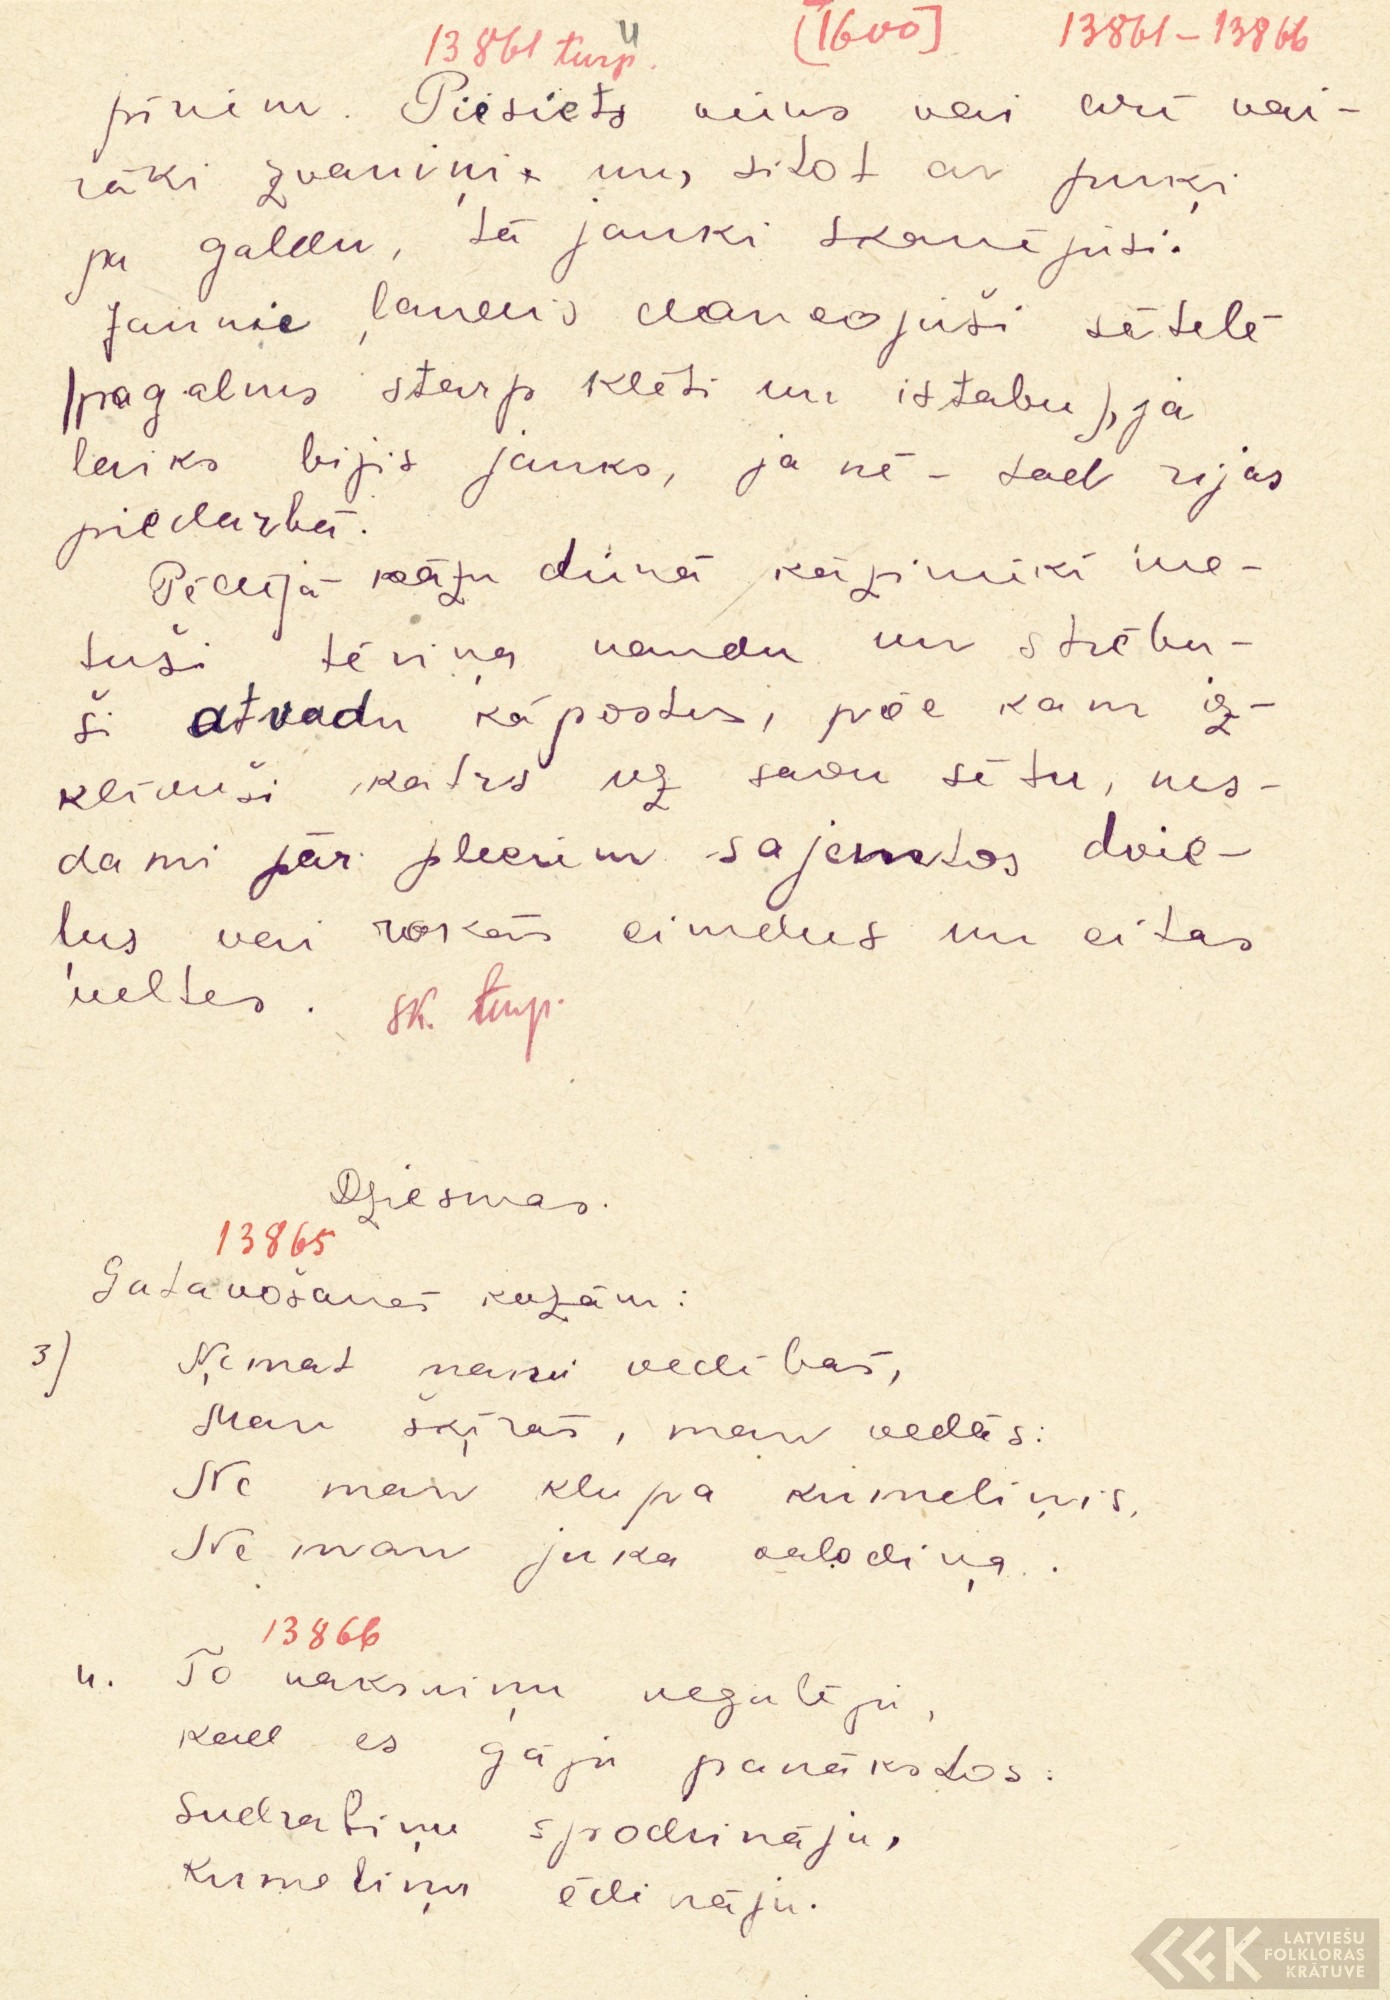 13861 turp. 4 [1600] 13861-13866
pīniem. Piesiets viens vai arī vai-
rāki zvaniņi un, sitot ar puķi
pa galdu, tā jauki skanējusi.
Jaunie ļaudis dancojuši sētelē
(pagalms starp klēti un istabu), ja
laiks bijis jauks, ja nē - tad rijas
piedarbā.
Pēdējā kāzu dienā kāzinieki me-
tuši tēviņa naudu un strēbu-
ši atvadu kāpostus, pēc kam iz-
klīduši katrs uz savu sētu, nes-
dami pār pleciem saņemtos dvie-
ļus vai rokās cimdus un citas
veltes. sk. turp.
Dziesmas.
13865
Gatavošanās kāzām:
3) Ņemat mani vedībās,
Man šķirās, man vedās:
Ne man klupa kumeliņis,
Ne man juka valodiņa.
13866
4. To naksniņu negulēju,
Kad es gāju panākstos:
Sudrabiņu spodrināju,
Kumeliņu ēdināju.
LATVIEŠU
FOLKLORAS
KRĀTUVE